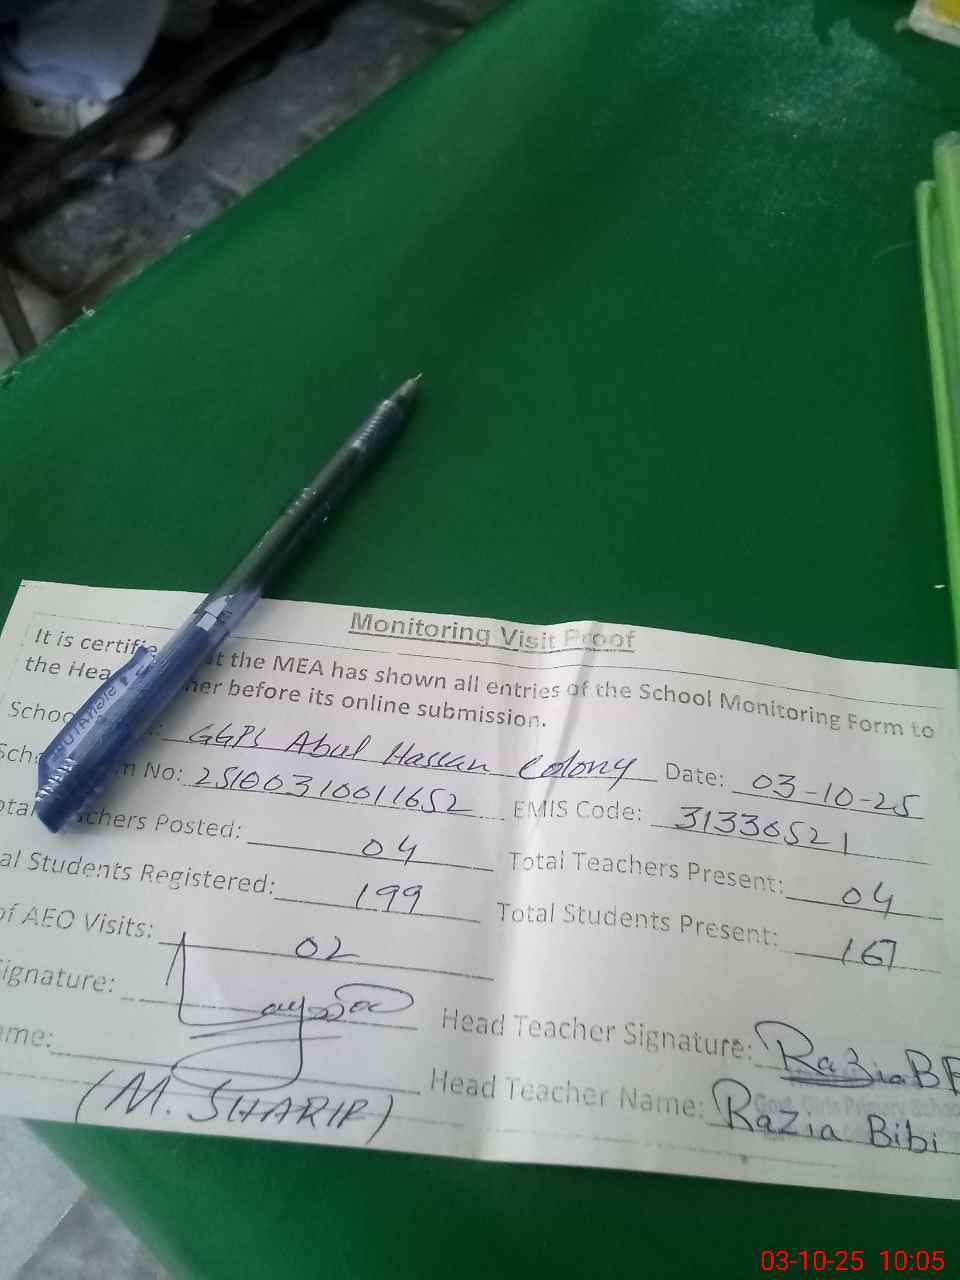 Monitoring Visit Proof
It is certifie t the MEA has shown all entries of the School Monitoring Form to
the Hea her before its online submission.
Schoo : GGPS Abul Hassan Colony Date: 03-10-25
Sch m No: 2510031001 1652 EMIS Code: 31330521
otal chers Posted: 04 Total Teachers Present: 04
al Students Registered: 199 Total Students Present: 167
of AEO Visits: 02
ignature: Head Teacher Signature: Razia BB
ame: (M. SHARIF) Head Teacher Name: Razia Bibi
Govt. Girls Primary School
03-10-25 10:05